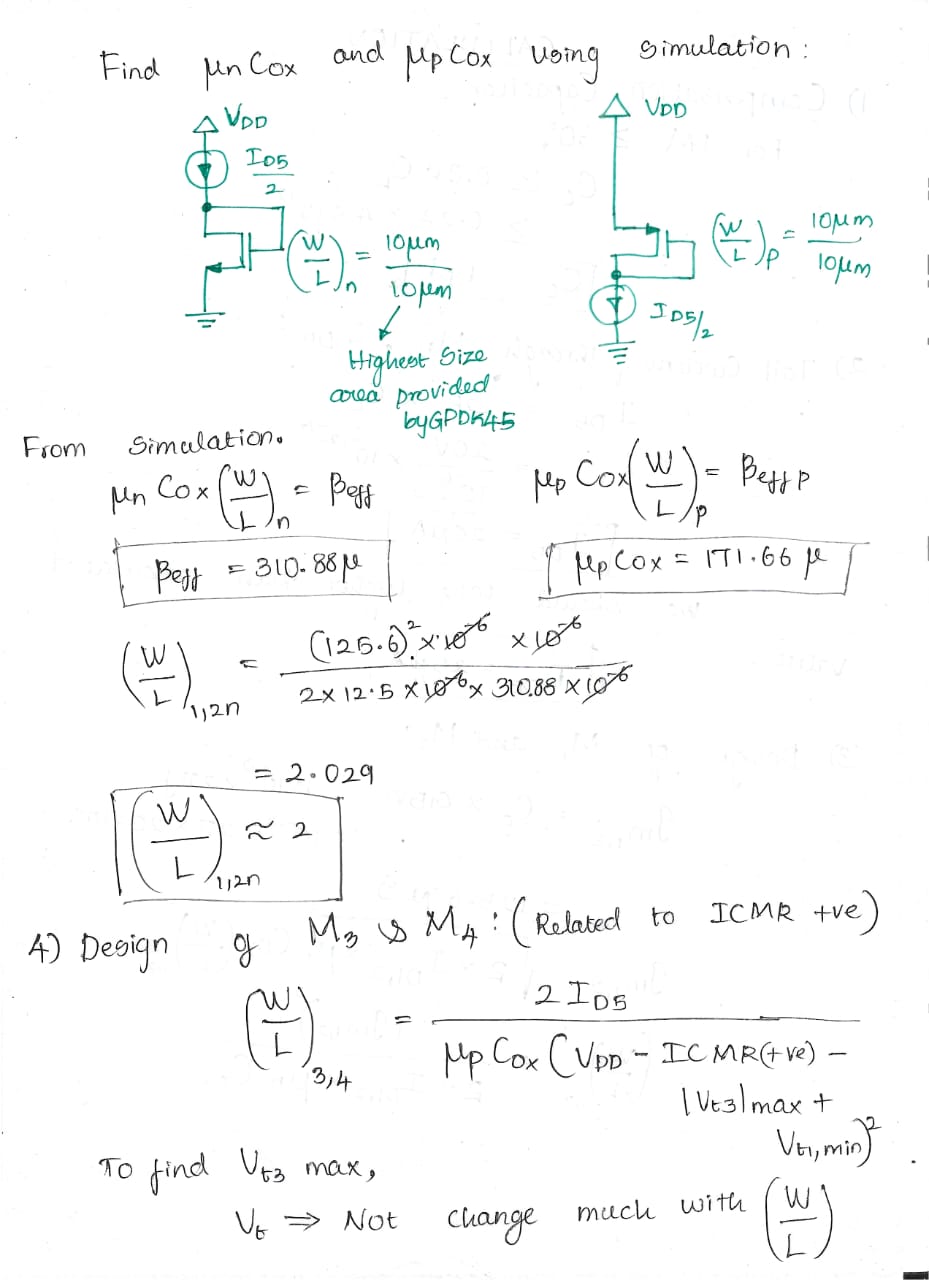 Find μn Cox and μp Cox using simulation :
VDD
ID5/2
(W/L)n = 10μm/10μm
Highest Size
area provided
by GPDK45
VDD
(W/L)p = 10μm/10μm
ID5/2
From Simulation.
μn Cox (W/L)n = βeff
βeff = 310.88 μ
μp Cox (W/L)p = βeff p
μp Cox = 171.66 μ
(W/L)1,2n = (125.6)² × 10^-6 × 10^-6 / 2 × 12.5 × 10^-6 × 310.88 × 10^-6
= 2.029
(W/L)1,2n ≈ 2
4) Design of M3 & M4 : (Related to ICMR +ve)
(W/L)3,4 = 2 ID5 / μp Cox (VDD - ICMR(+ve) -
|Vt3| max +
Vt1, min)² .
To find Vt3 max,
Vt ⇒ Not change much with (W/L)